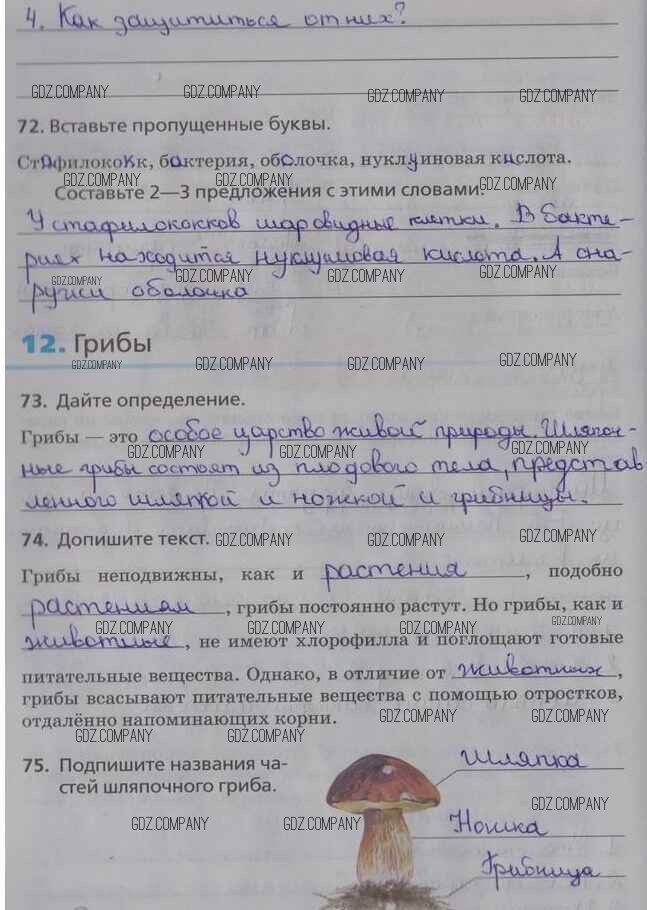 4. Как защититься от них?
GDZ.COMPANY GDZ.COMPANY GDZ.COMPANY GDZ.COMPANY
72. Вставьте пропущенные буквы.
Стафилококк, бактерия, оболочка, нуклуиновая кислота.
GDZ.COMPANY GDZ.COMPANY GDZ.COMPANY GDZ.COMPANY
Составьте 2—3 предложения с этими словами.
У стафилококков шаровидные клетки. В бакте-
риях находится нуклуиновая кислота. А сна-
GDZ.COMPANY GDZ.COMPANY GDZ.COMPANY GDZ.COMPANY
ружи оболочка
12. Грибы
GDZ.COMPANY GDZ.COMPANY GDZ.COMPANY GDZ.COMPANY
73. Дайте определение.
Грибы — это особое царство живой природы. Шляпоч-
GDZ.COMPANY GDZ.COMPANY GDZ.COMPANY GDZ.COMPANY
ные грибы состоят из плодового тела, представ
ленного шляпкой и ножкой и грибницы.
74. Допишите текст.
GDZ.COMPANY GDZ.COMPANY GDZ.COMPANY
Грибы неподвижны, как и растения, подобно
растениям, грибы постоянно растут. Но грибы, как и
GDZ.COMPANY GDZ.COMPANY GDZ.COMPANY GDZ.COMPANY
животные, не имеют хлорофилла и поглощают готовые
питательные вещества. Однако, в отличие от животных,
грибы всасывают питательные вещества с помощью отростков,
отдалённо напоминающих корни.
GDZ.COMPANY GDZ.COMPANY
GDZ.COMPANY GDZ.COMPANY
75. Подпишите названия ча-
стей шляпочного гриба.
Шляпка
GDZ.COMPANY
GDZ.COMPANY GDZ.COMPANY
Ножка
Грибница